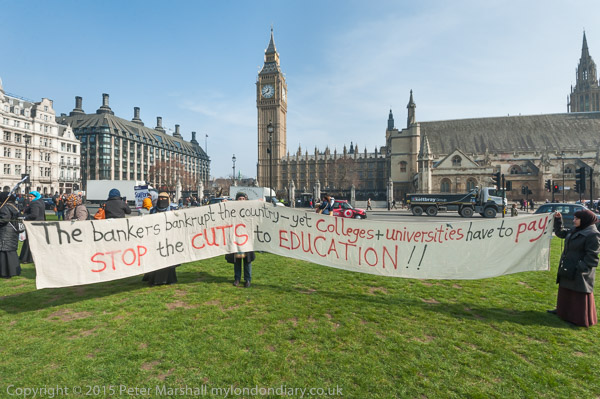 The bankers bankrupt the country - yet Colleges + universities have to pay!
STOP the CUTS to EDUCATION !!
Kettbray Group
Copyright © 2015 Peter Marshall mylondondiary.co.uk